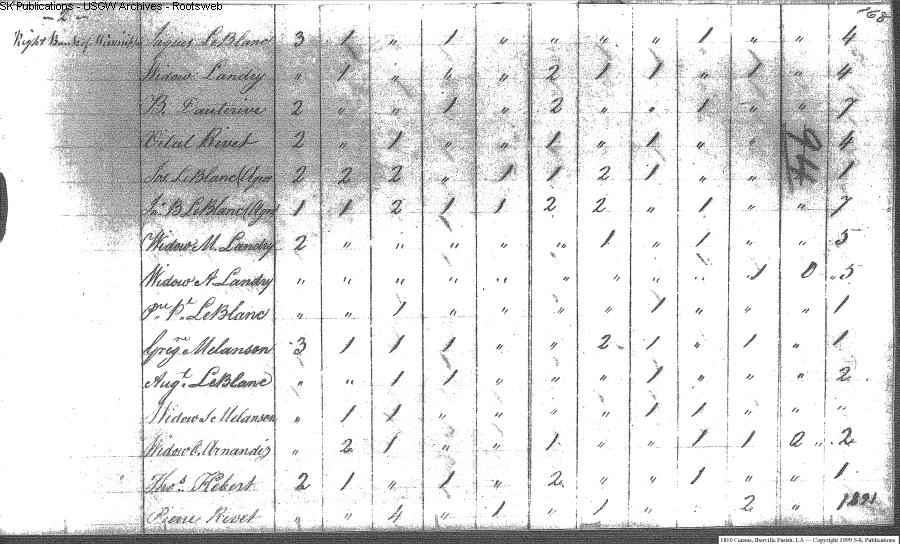 SK Publications - USGW Archives - Rootsweb
- 2 - 168
Right Bank of LeBlanc 3 1 " 1 " " " " 1 " " 4
Widow Landry " 1 " " " 2 1 1 " 1 " 4
B. Dauterive 2 " " 1 " 2 " " 1 " " 7
Vital Rivet 2 " 1 " " 1 " 1 " " 4
Jos. LeBlanc 2 2 2 " 1 1 2 1 " " 1
94
Jn. B. LeBlanc 1 1 2 1 1 2 2 " 1 " " 7
Widow M. Landry 2 " " " " " 1 " 1 " " 5
Widow A. Landry " " " " " " " " " 1 0 " 5
Pre. Pl. LeBlanc " " 1 " " " " 1 " " " 1
Gregre. Melanson 3 1 1 1 " " 2 1 " 1 " 1
Augt. LeBlanc " " 1 1 " " " 1 " " " 2
Widow J. Melanson " 1 1 " " " " 1 1 " " "
Widow O. Arnandiz " 2 1 " " 1 " " 1 1 0 " 2
Thos. Hebert 2 1 " 1 " 2 " " 1 " " 1
Pierre Rivet " " 4 " 1 " 1 " " 2 "
1810 Census, Iberville Parish, LA — Copyright 1999 S-K Publications